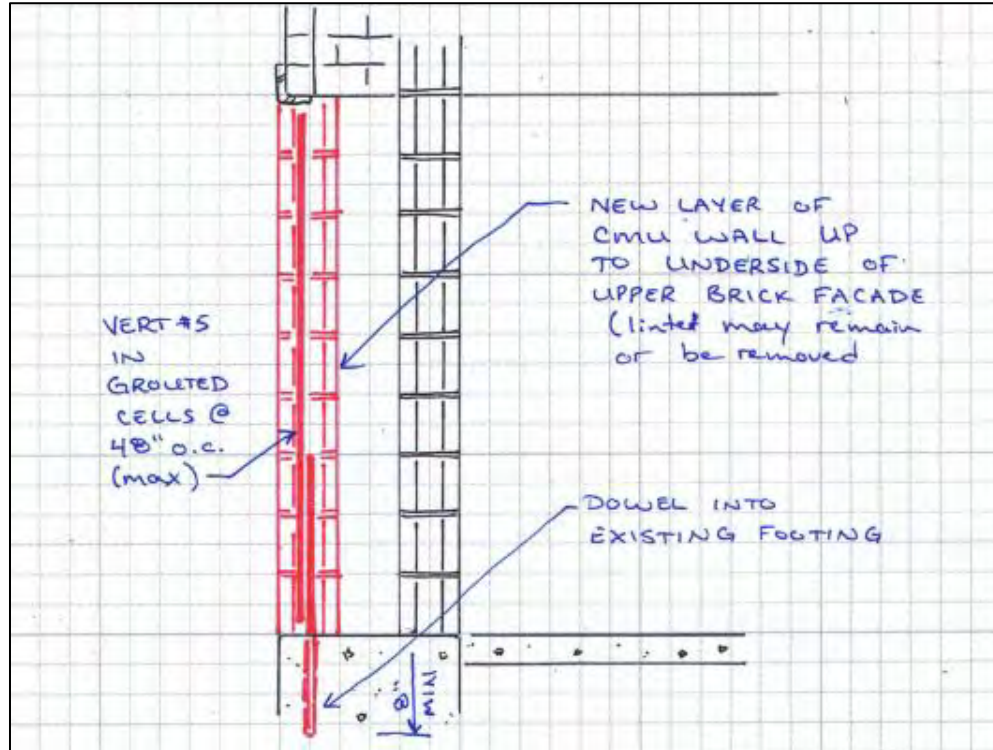 NEW LAYER OF
CMU WALL UP
TO UNDERSIDE OF
UPPER BRICK FACADE
(lintel may remain
or be removed
VERT #5
IN
GROUTED
CELLS @
48" O.C.
(max)
DOWEL INTO
EXISTING FOOTING
8"
MIN